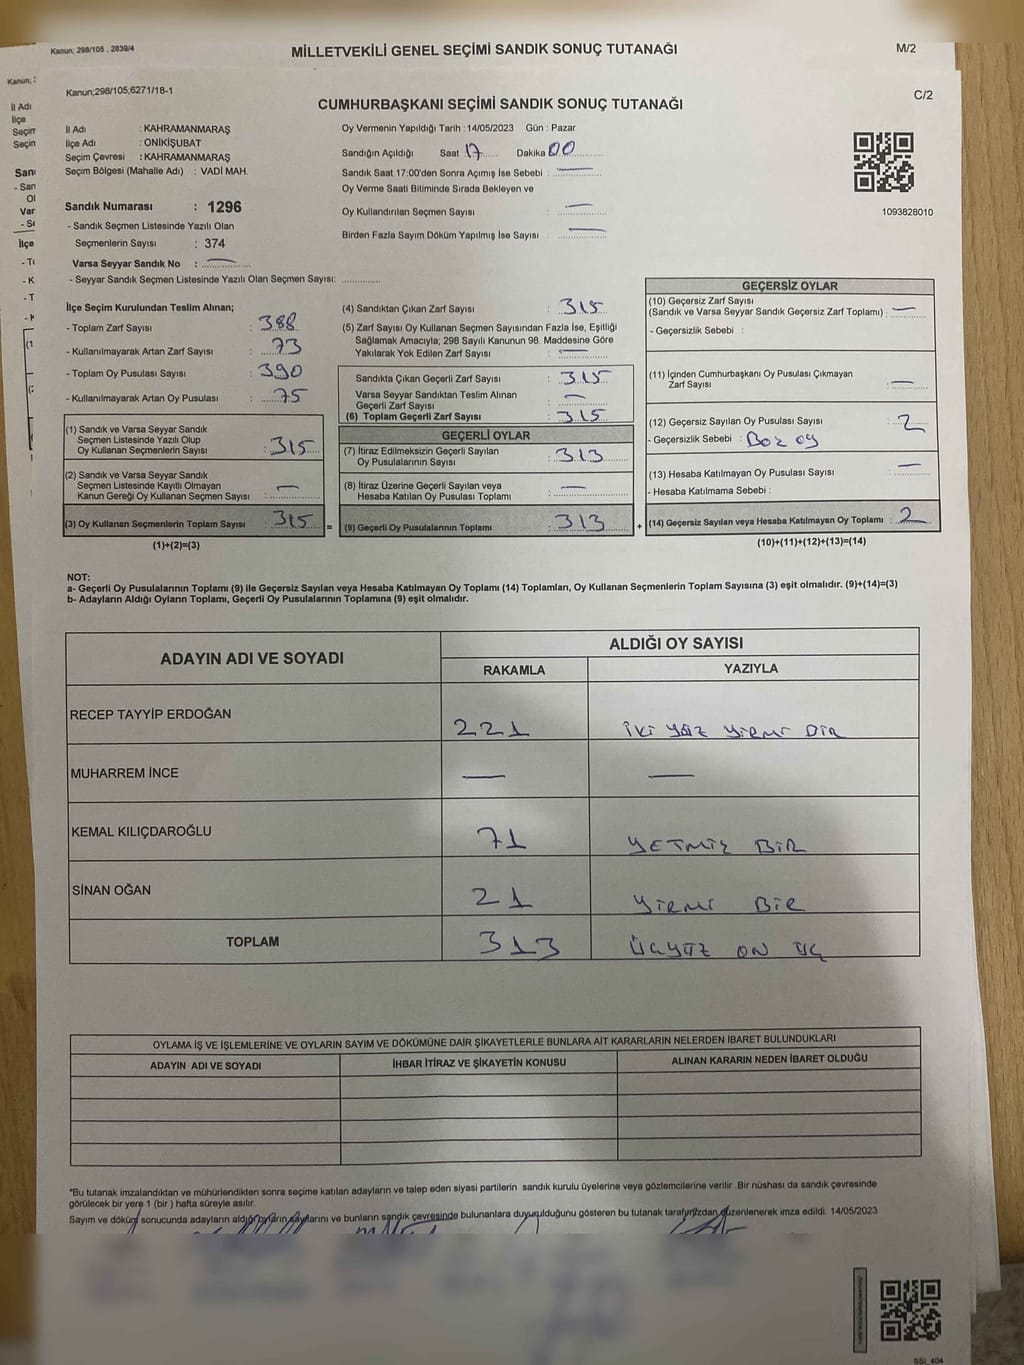 Kanun; 298/105 , 2839/4
MİLLETVEKİLİ GENEL SEÇİMİ SANDIK SONUÇ TUTANAĞI
M/2
Kanun;298/105,6271/18-1
CUMHURBAŞKANI SEÇİMİ SANDIK SONUÇ TUTANAĞI
C/2
İl Adı : KAHRAMANMARAŞ
İlçe Adı : ONİKİŞUBAT
Seçim Çevresi : KAHRAMANMARAŞ
Seçim Bölgesi (Mahalle Adı) : VADİ MAH.
Sandık Numarası : 1296
- Sandık Seçmen Listesinde Yazılı Olan
Seçmenlerin Sayısı : 374
Varsa Seyyar Sandık No : —
- Seyyar Sandık Seçmen Listesinde Yazılı Olan Seçmen Sayısı: ..............
Oy Vermenin Yapıldığı Tarih : 14/05/2023 Gün : Pazar
Sandığın Açıldığı Saat 17 Dakika 00
Sandık Saat 17:00'den Sonra Açımış İse Sebebi : —
Oy Verme Saati Bitiminde Sırada Bekleyen ve
Oy Kullandırılan Seçmen Sayısı : —
Birden Fazla Sayım Döküm Yapılmış İse Sayısı : —
1093828010
İlçe Seçim Kurulundan Teslim Alınan;
- Toplam Zarf Sayısı : 388
- Kullanılmayarak Artan Zarf Sayısı : 73
- Toplam Oy Pusulası Sayısı : 390
- Kullanılmayarak Artan Oy Pusulası : 75
(1) Sandık ve Varsa Seyyar Sandık
Seçmen Listesinde Yazılı Olup
Oy Kullanan Seçmenlerin Sayısı : 315
(2) Sandık ve Varsa Seyyar Sandık
Seçmen Listesinde Kayıtlı Olmayan
Kanun Gereği Oy Kullanan Seçmen Sayısı : —
(3) Oy Kullanan Seçmenlerin Toplam Sayısı : 315
(1)+(2)=(3)
(4) Sandıktan Çıkan Zarf Sayısı : 315
(5) Zarf Sayısı Oy Kullanan Seçmen Sayısından Fazla İse, Eşitliği
Sağlamak Amacıyla; 298 Sayılı Kanunun 98. Maddesine Göre
Yakılarak Yok Edilen Zarf Sayısı : —
Sandıkta Çıkan Geçerli Zarf Sayısı : 315
Varsa Seyyar Sandıktan Teslim Alınan
Geçerli Zarf Sayısı : —
(6) Toplam Geçerli Zarf Sayısı : 315
GEÇERLİ OYLAR
(7) İtiraz Edilmeksizin Geçerli Sayılan
Oy Pusulalarının Sayısı : 313
(8) İtiraz Üzerine Geçerli Sayılan veya
Hesaba Katılan Oy Pusulası Toplamı : —
= (9) Geçerli Oy Pusulalarının Toplamı : 313
GEÇERSİZ OYLAR
(10) Geçersiz Zarf Sayısı
(Sandık ve Varsa Seyyar Sandık Geçersiz Zarf Toplamı) : —
- Geçersizlik Sebebi :
(11) İçinden Cumhurbaşkanı Oy Pusulası Çıkmayan
Zarf Sayısı : —
(12) Geçersiz Sayılan Oy Pusulası Sayısı : 2
- Geçersizlik Sebebi : Boz oy
(13) Hesaba Katılmayan Oy Pusulası Sayısı : —
- Hesaba Katılmama Sebebi :
+ (14) Geçersiz Sayılan veya Hesaba Katılmayan Oy Toplamı : 2
(10)+(11)+(12)+(13)=(14)
NOT:
a- Geçerli Oy Pusulalarının Toplamı (9) ile Geçersiz Sayılan veya Hesaba Katılmayan Oy Toplamı (14) Toplamları, Oy Kullanan Seçmenlerin Toplam Sayısına (3) eşit olmalıdır. (9)+(14)=(3)
b- Adayların Aldığı Oyların Toplamı, Geçerli Oy Pusulalarının Toplamına (9) eşit olmalıdır.
ADAYIN ADI VE SOYADI
ALDIĞI OY SAYISI
RAKAMLA YAZIYLA
RECEP TAYYİP ERDOĞAN 221 İki yüz yirmi bir
MUHARREM İNCE — —
KEMAL KILIÇDAROĞLU 71 YETMİŞ BİR
SİNAN OĞAN 21 YİRMİ BİR
TOPLAM 313 ÜÇYÜZ ON ÜÇ
OYLAMA İŞ VE İŞLEMLERİNE VE OYLARIN SAYIM VE DÖKÜMÜNE DAİR ŞİKAYETLERLE BUNLARA AİT KARARLARIN NELERDEN İBARET BULUNDUKLARI
ADAYIN ADI VE SOYADI İHBAR İTİRAZ VE ŞİKAYETİN KONUSU ALINAN KARARIN NEDEN İBARET OLDUĞU
*Bu tutanak imzalandıktan ve mühürlendikten sonra seçime katılan adayların ve talep eden siyasi partilerin sandık kurulu üyelerine veya gözlemcilerine verilir .Bir nüshası da sandık çevresinde
görülecek bir yere 1 (bir ) hafta süreyle asılır.
Sayım ve döküm sonucunda adayların aldığı oyların sayılarını ve bunların sandık çevresinde bulunanlara duyurulduğunu gösteren bu tutanak tarafımızdan düzenlenerek imza edildi. 14/05/2023
SSI_404